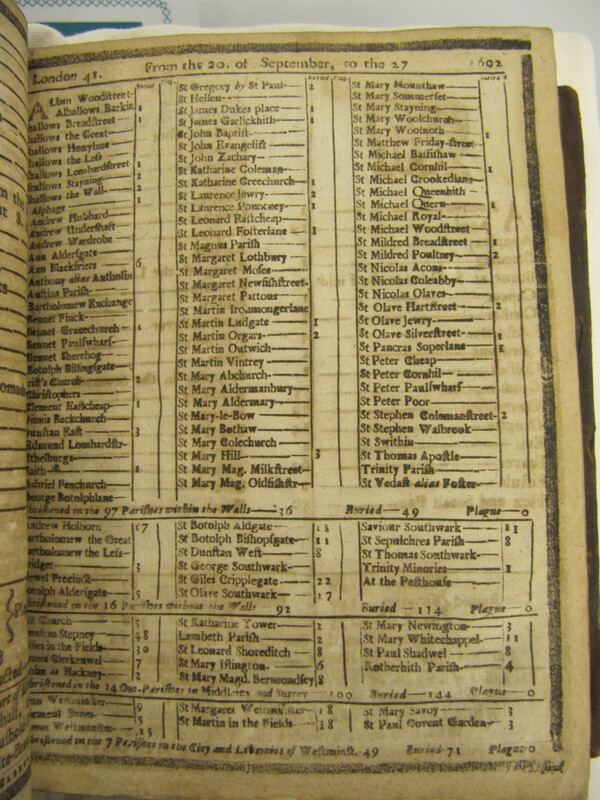 London 41. From the 20. of September, to the 27 1692
Buried Plag.
Alban Woodstreet
Alhallows Barkin 1
hallows Breadstreet 1
hallows the Great
hallows Honylane
hallows the Less
hallows Lombardstreet 1
hallows Stayning 2
hallows the Wall 2
Alphage 1
Andrew Hubbard
Andrew Undershaft
Andrew Wardrobe
Ann Aldersgate
Ann Blackfriers 6
Anthony alias Antholin
Austins Parish
Bartholomew Exchange
Bennet Finck
Bennet Gracechurch 1
Bennet Paulswharf
Bennet Sherehog
Botolph Billingsgate
rist's Church 2
hristophers
Clement Eastcheap 1
Dionis Backchurch
Dunstan East 3
Edmund Lombardstr
Ethelburga
Faith 1
Gabriel Fenchurch
George Botolphlane
Buried Plag.
St Gregory by St Paul 2
St Hellen
St James Dukes place 1
St James Garlickhith 1
St John Baptist
St John Evangelist
St John Zachary
St Katharine Coleman
St Katharine Creechurch 1
St Laurence Jewry 2
St Laurence Pountney 1
St Leonard Eastcheap
St Leonard Fosterlane 1
St Magnus Parish
St Margaret Lothbury
St Margaret Moses
St Margaret Newfishstreet
St Margaret Pattons
St Martin Ironmongerlane
St Martin Ludgate 1
St Martin Orgars 2
St Martin Outwich
St Martin Vintrey
St Mary Abchurch
St Mary Aldermanbury
St Mary Aldermary
St Mary-le-Bow
St Mary Bothaw
St Mary Colechurch
St Mary Hill 3
St Mary Mag. Milkstreet
St Mary Mag. Oldfishstr
St Mary Mounthaw
St Mary Sommerset
St Mary Stayning
St Mary Woolchurch
St Mary Woolnoth 1
St Matthew Friday-street
St Michael Bassishaw
St Michael Cornhil 1
St Michael Crookedlane
St Michael Queenhith
St Michael Quern 1
St Michael Royal
St Michael Woodstreet
St Mildred Breadstreet 1
St Mildred Poultney 2
St Nicolas Acons
St Nicolas Coleabby
St Nicolas Olaves
St Olave Hartstreet 2
St Olave Jewry
St Olave Silverstreet 1
St Pancras Soperlane 1
St Peter Cheap
St Peter Cornhil
St Peter Paulswharf
St Peter Poor
St Stephen Colemanstreet 2
St Stephen Walbrook
St Swithin
St Thomas Apostle
Trinity Parish
St Vedast alias Foster
Christened in the 97 Parishes within the Walls 36 Buried 49 Plague 0
Andrew Holborn 17
artholomew the Great
artholomew the Less
ridget 3
ewel Precinct
otolph Aldersgate 5
St Botolph Aldgate
St Botolph Bishopsgate 11
St Dunstan West 8
St George Southwark
St Giles Cripplegate 22
St Olave Southwark 17
Saviour Southwark 11
St Sepulchres Parish 8
St Thomas Southwark
Trinity Minories 1
At the Pesthouse
Christened in the 16 Parishes without the Walls 92 Buried 114 Plague 0
Church 5
unstan Stepney 48
iles in the Fields 30
ames Clerkenwel 7
ohn at Hackney 2
St Katharine Tower 2
Lambeth Parish 2
St Leonard Shoreditch 8
St Mary Islington 6
St Mary Magd. Bermondsey 8
St Mary Newington 3
St Mary Whitechappel 11
St Paul Shadwel 8
Rotherhith Parish 4
Christened in the 14 Out-Parishes in Middlesex and Surrey 100 Buried 144 Plague 0
Westminster 9
lement Danes 5
ames Westminster 15
St Margaret Westminster 18
St Martin in the Fields 18
St Mary Savoy 3
St Paul Covent Garden 3
Christened in the 7 Parishes in the City and Liberties of Westminst. 49 Buried 71 Plague 0